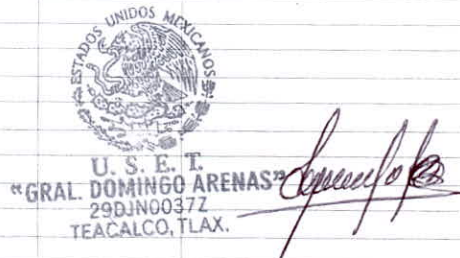 ESTADOS UNIDOS MEXICANOS
U. S. E. T.
"GRAL. DOMINGO ARENAS"
29DJN0037Z
TEACALCO, TLAX.